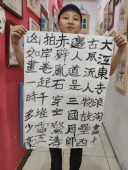 大江東去浪淘盡千
古風流人物故壘西
邊人道是三國周郎
赤壁亂石穿空驚濤
拍岸卷起千堆雪江
山如畫一時多少豪